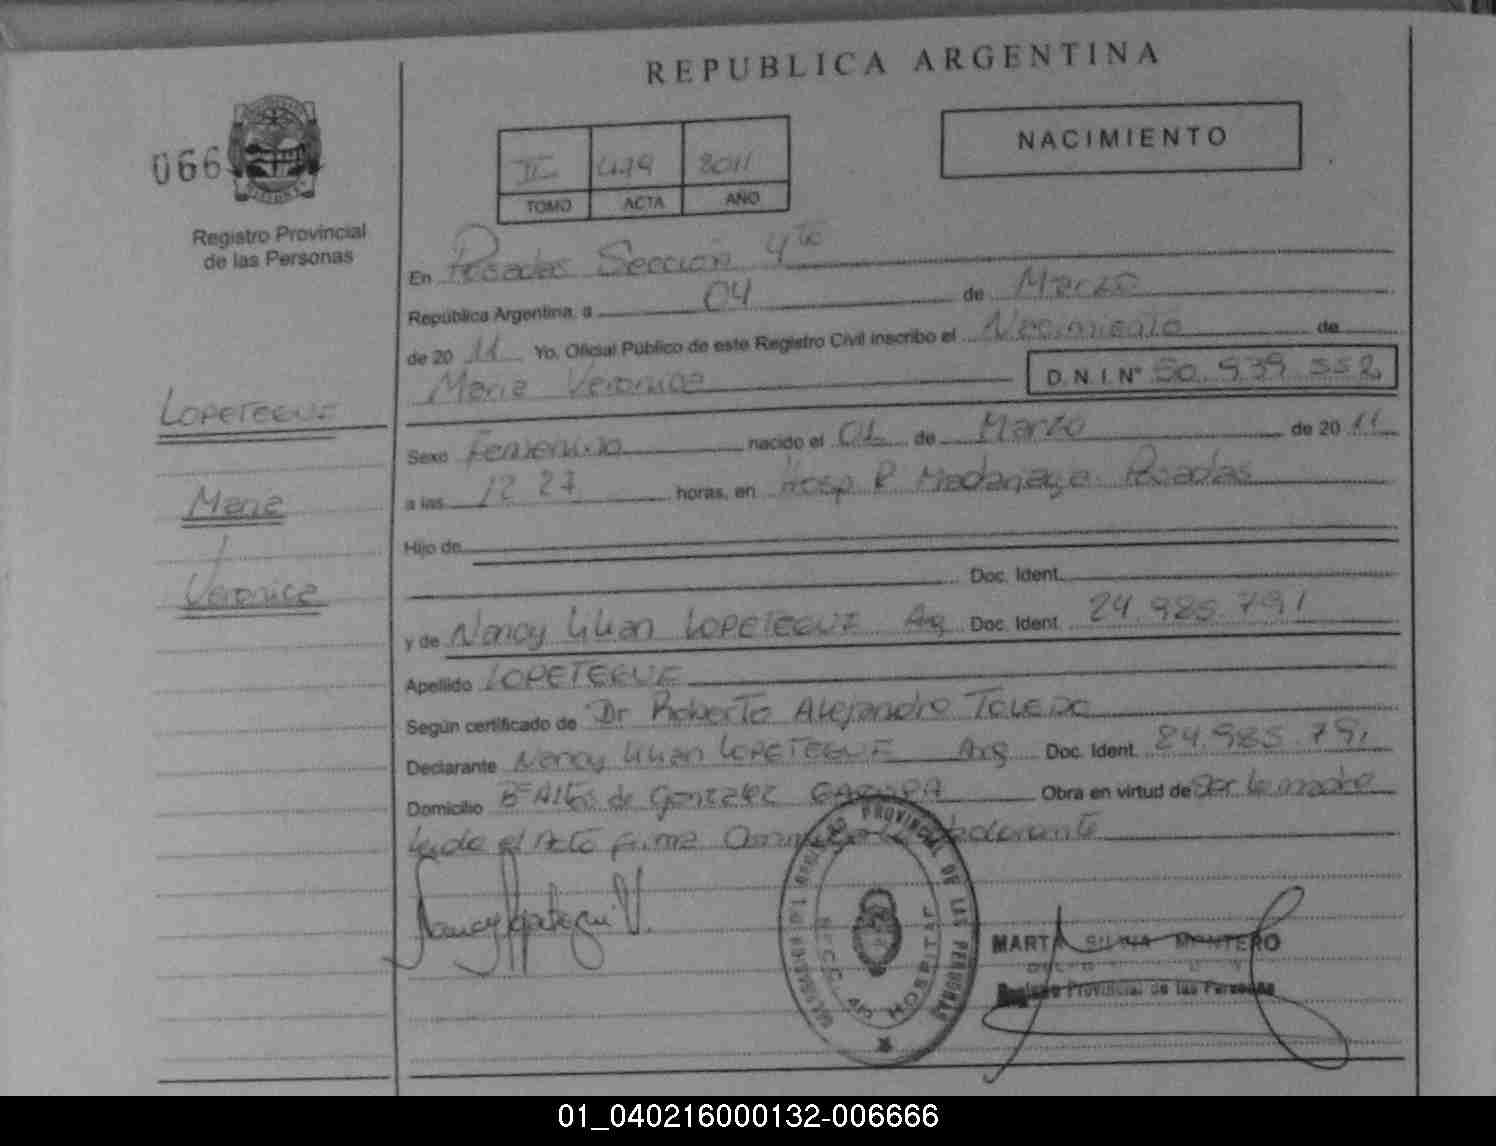 REPUBLICA ARGENTINA
066
NACIMIENTO
II 479 2011
TOMO ACTA AÑO
Registro Provincial
de las Personas
En Posadas Sección 4ta
República Argentina, a 04 de Marzo
de 2011 Yo, Oficial Público de este Registro Civil inscribo el Nacimiento de
Maria Veronica D.N.I. Nº 50.939.552
LOPETEGUI
Sexo Femenino nacido el 01 de Marzo de 2011
a las 12 27 horas, en Hosp R Madariaga. Posadas
Maria
Hijo de
Doc. Ident.
Veronica
y de Nancy Lilian LOPETEGUI Arg Doc. Ident. 24.985.791
Apellido LOPETEGUI
Según certificado de Dr Roberto Alejandro TOLEDO
Declarante Nancy Lilian LOPETEGUI Arg Doc. Ident. 24.985.791
Domicilio Bº Altos de Gonzalez GARUPA Obra en virtud de Ser la madre
Leida el Acta firma declarante
Nancy Lopetegui
REGISTRO PROVINCIAL DE LAS PERSONAS
HOSPITAL
MARTA SILVIA MONTERO
Registro Provincial de las Personas
01_040216000132-006666